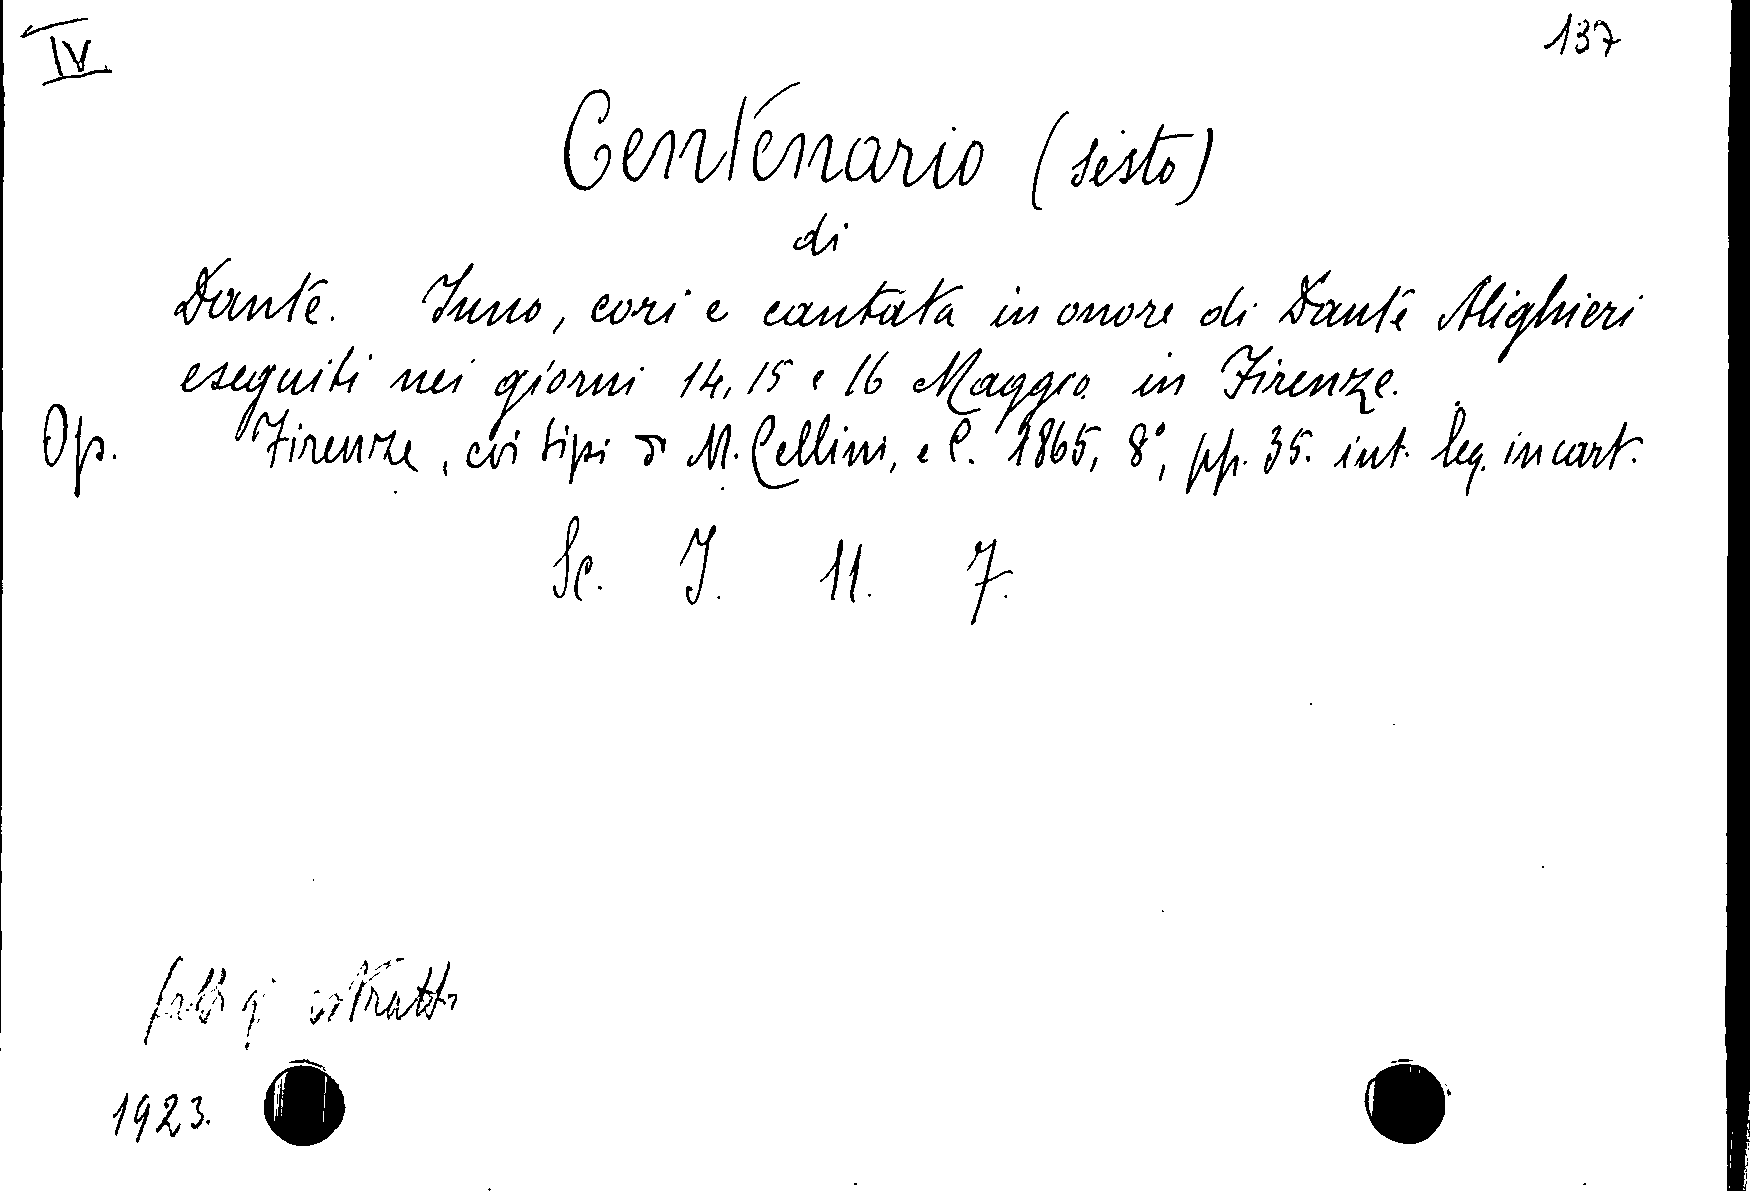 IV
137
Centenario (sesto)
di
Dante. Inno, cori e cantata in onore di Dante Alighieri
eseguiti nei giorni 14, 15 e 16 Maggio in Firenze.
Op. Firenze, coi tipi di M. Cellini, e C. 1865, 8°, pp. 35. int. leg. in cart.
Sc. I. 11. 7.
estratto
1923.